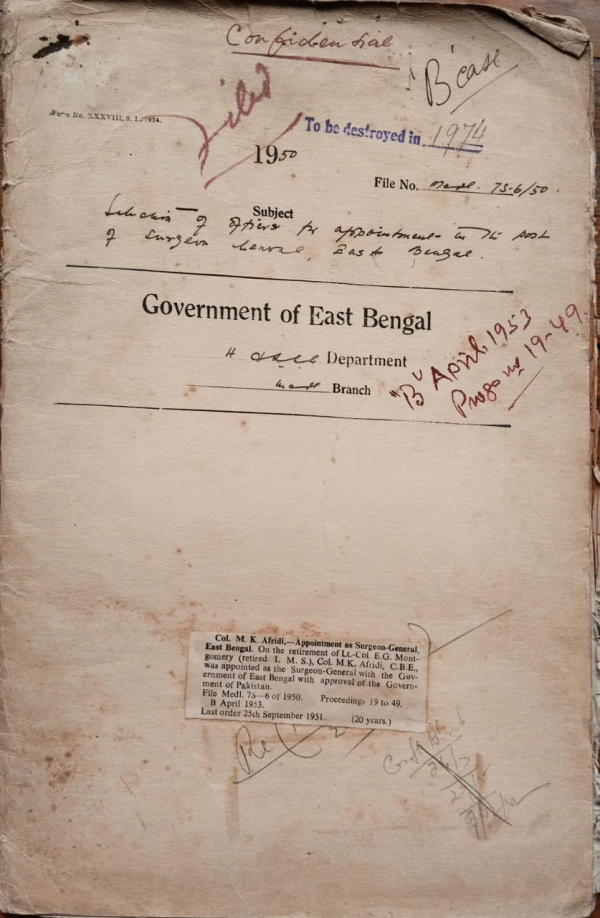 Confidential
'B' case
Filed
Form No. XXXVIII, S. I., 1924.
To be destroyed in 1974
1950
File No. Medl. 7S-6/50.
Subject
Selection of officer for appointment in the post
of Surgeon General, East Bengal.
Government of East Bengal
H & L S G Department
Medl Branch
"B" April, 1953
Progs nos 19-49.
Col. M. K. Afridi,—Appointment as Surgeon-General,
East Bengal. On the retirement of Lt.-Col. E.G. Mont-
gomery (retired I. M. S.), Col. M.K. Afridi, C.B.E.,
was appointed as the Surgeon-General with the Gov-
ernment of East Bengal with approval of the Govern-
ment of Pakistan.
File Medl. 7S—6 of 1950. Proceedings 19 to 49.
B April 1953.
Last order 25th September 1951. (20 years.)